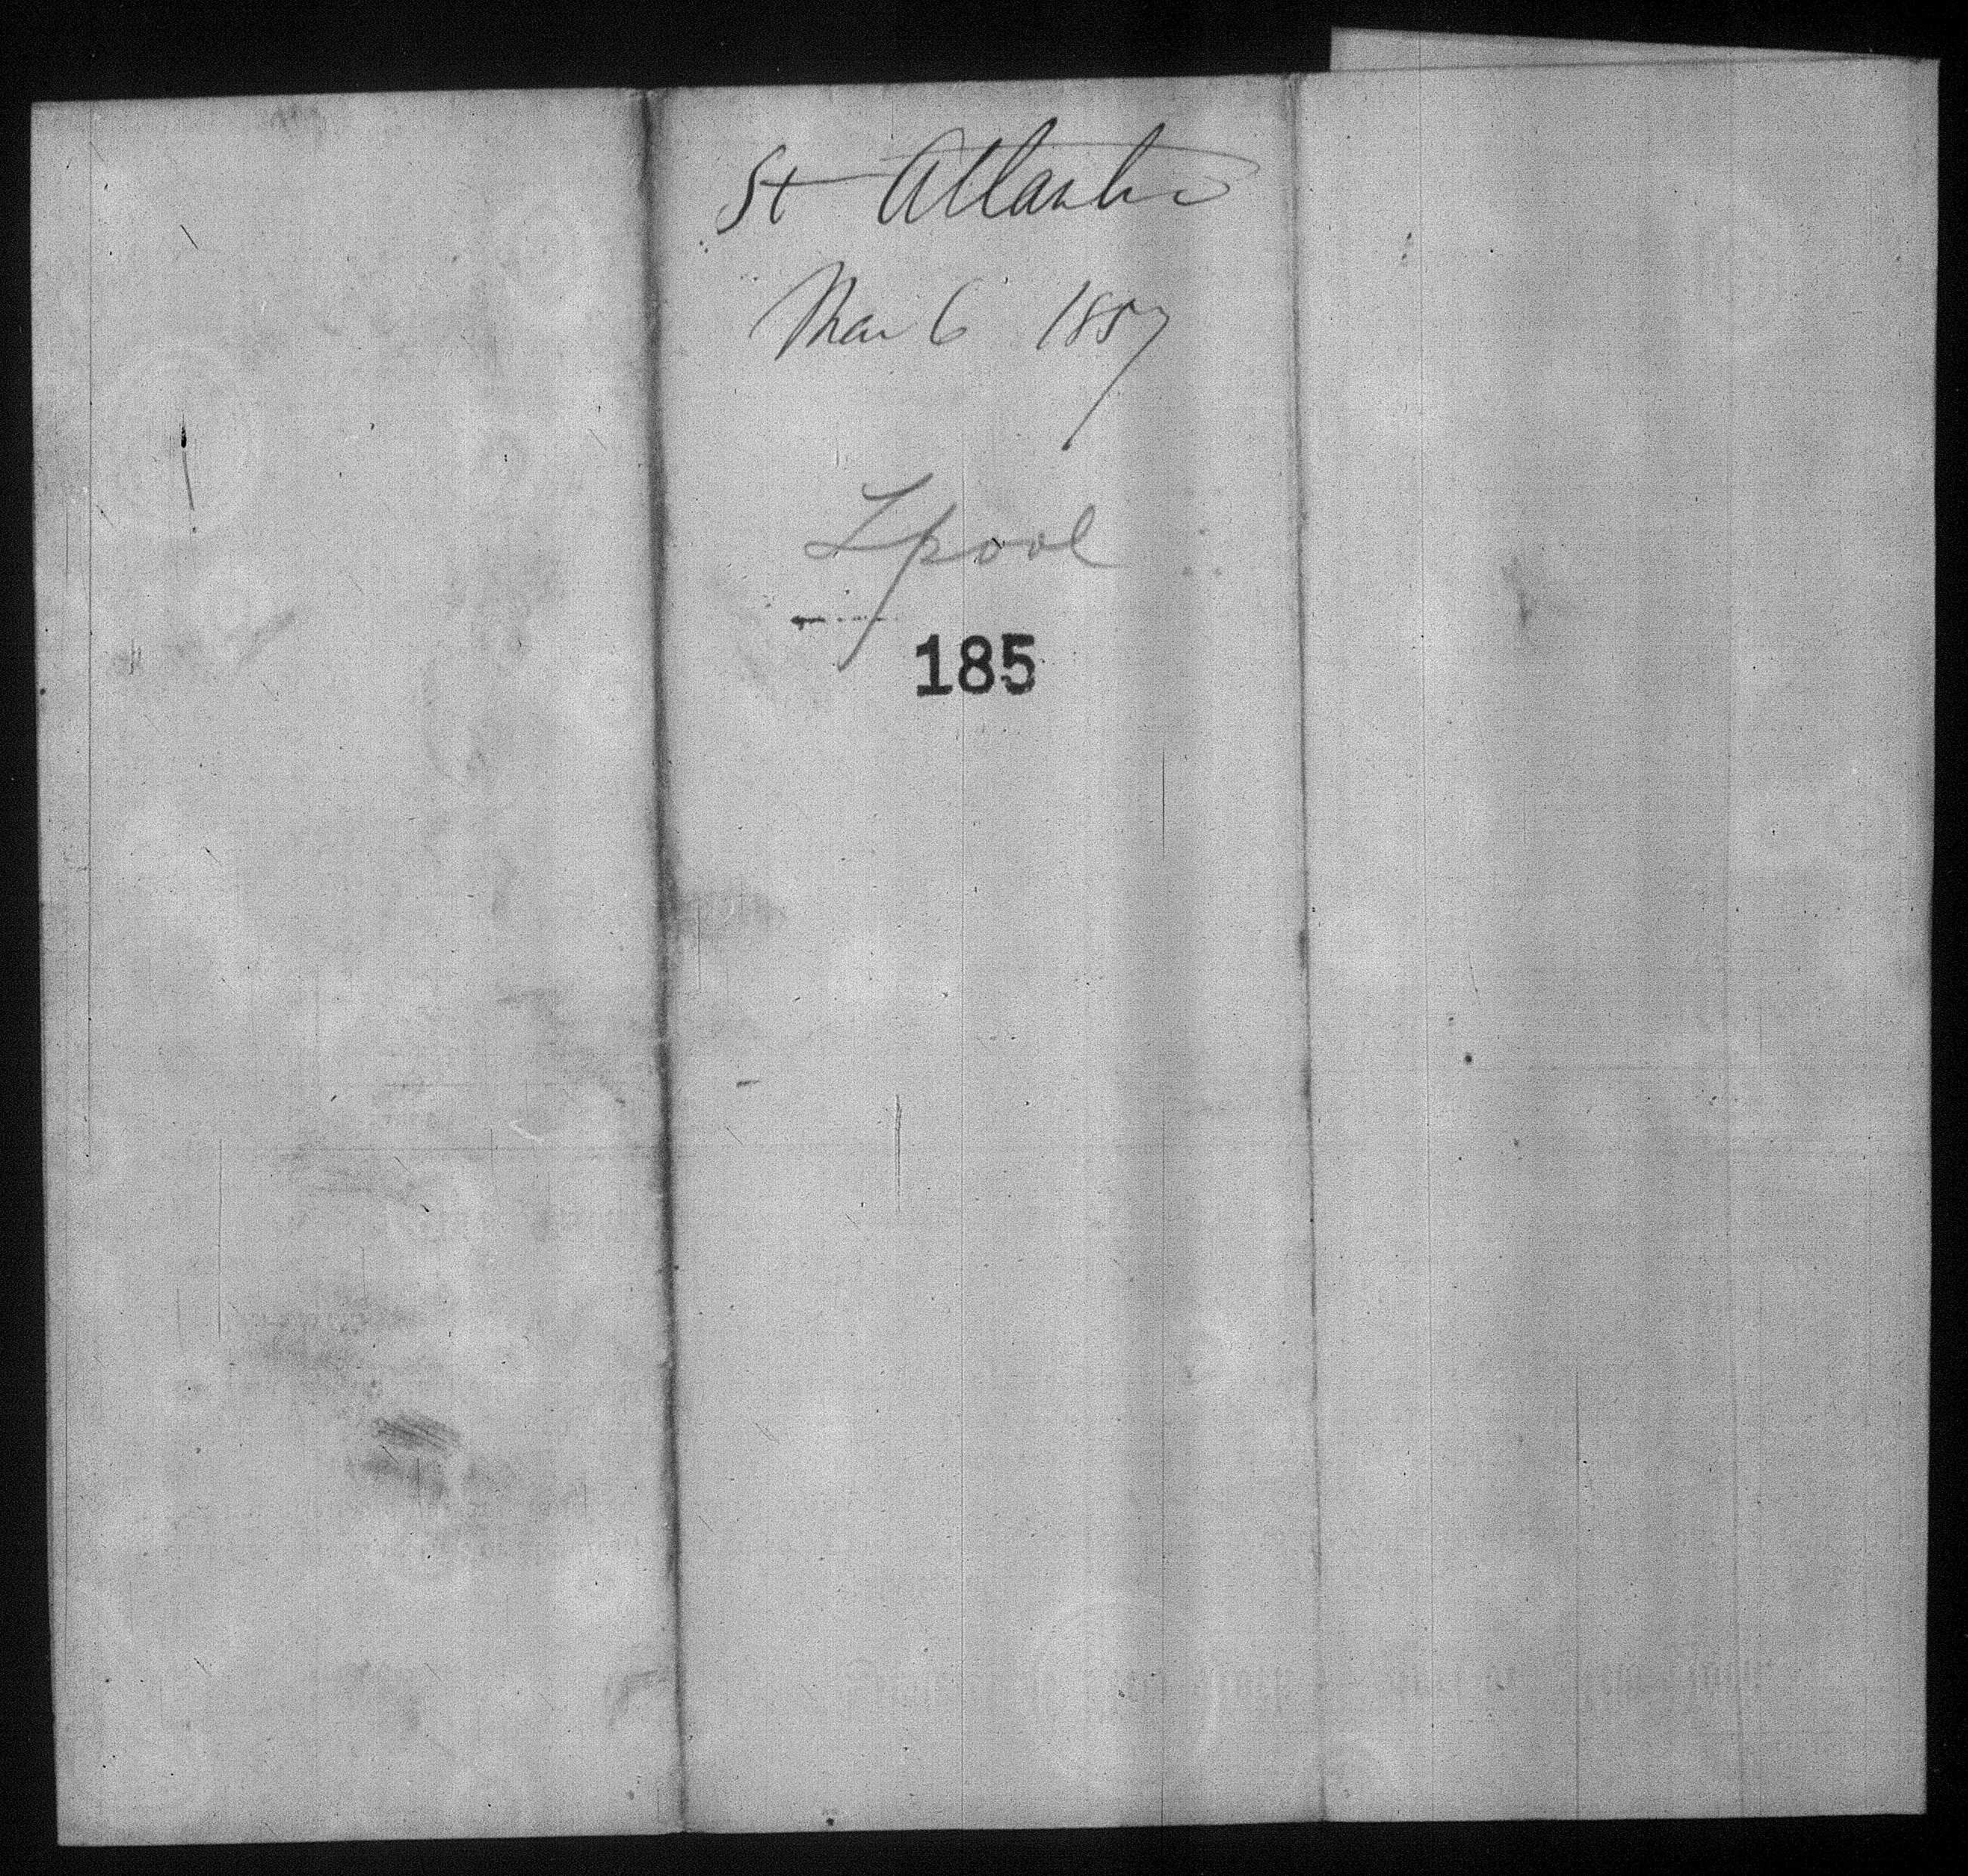 St Atlantic
Mar 6 1857
Lpool
185